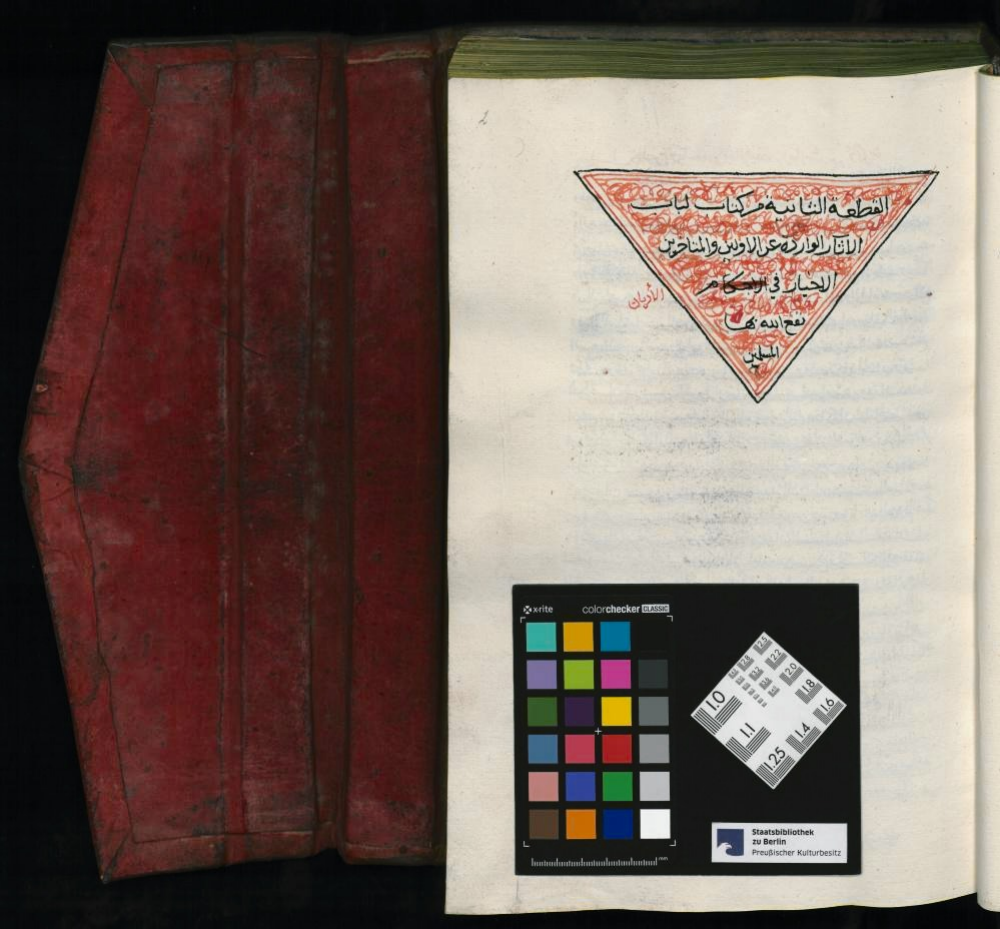 2
القطعة الثانية من كتاب لباب
الآثار الواردة عن الاولين والمتأخرين
الاخيار في الاحكام
الأديان
نفع الله بها
المسلمين
x-rite colorchecker CLASSIC
2.5
2.8 2.2
2.0
1.8
1.0 1.6
1.1 1.4
1.25
mm
Staatsbibliothek
zu Berlin
Preußischer Kulturbesitz